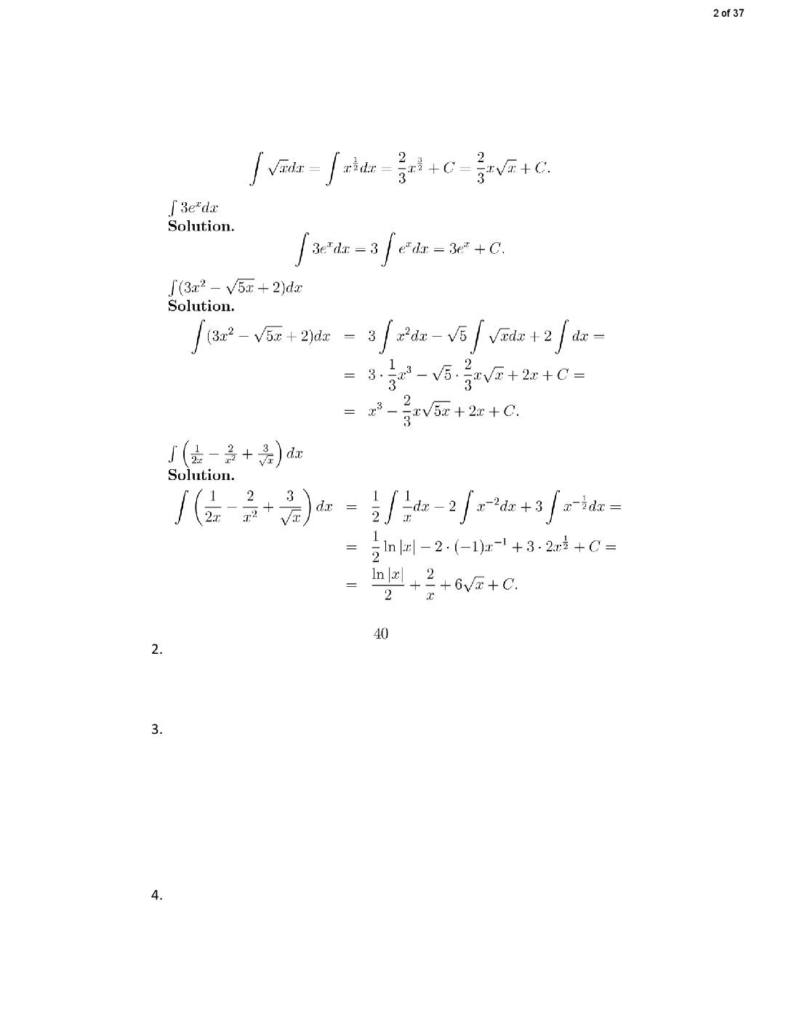 2 of 37
∫ √x dx = ∫ x^{1/2} dx = 2/3 x^{3/2} + C = 2/3 x√x + C.
∫ 3e^x dx
Solution.
∫ 3e^x dx = 3 ∫ e^x dx = 3e^x + C.
∫(3x² − √5x + 2)dx
Solution.
∫ (3x² − √5x + 2)dx = 3 ∫ x² dx − √5 ∫ √x dx + 2 ∫ dx =
= 3 · 1/3 x³ − √5 · 2/3 x√x + 2x + C =
= x³ − 2/3 x√5x + 2x + C.
∫ (1/2x − 2/x² + 3/√x) dx
Solution.
∫ (1/2x − 2/x² + 3/√x) dx = 1/2 ∫ 1/x dx − 2 ∫ x^{−2} dx + 3 ∫ x^{−1/2} dx =
= 1/2 ln |x| − 2 · (−1)x^{−1} + 3 · 2x^{1/2} + C =
= ln |x|/2 + 2/x + 6√x + C.
40
2.
3.
4.